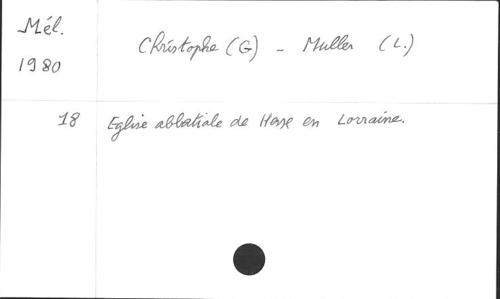 Mél.
1980
Christophe (G) - Muller (L.)
18 Eglise abbatiale de Hesse en Lorraine.